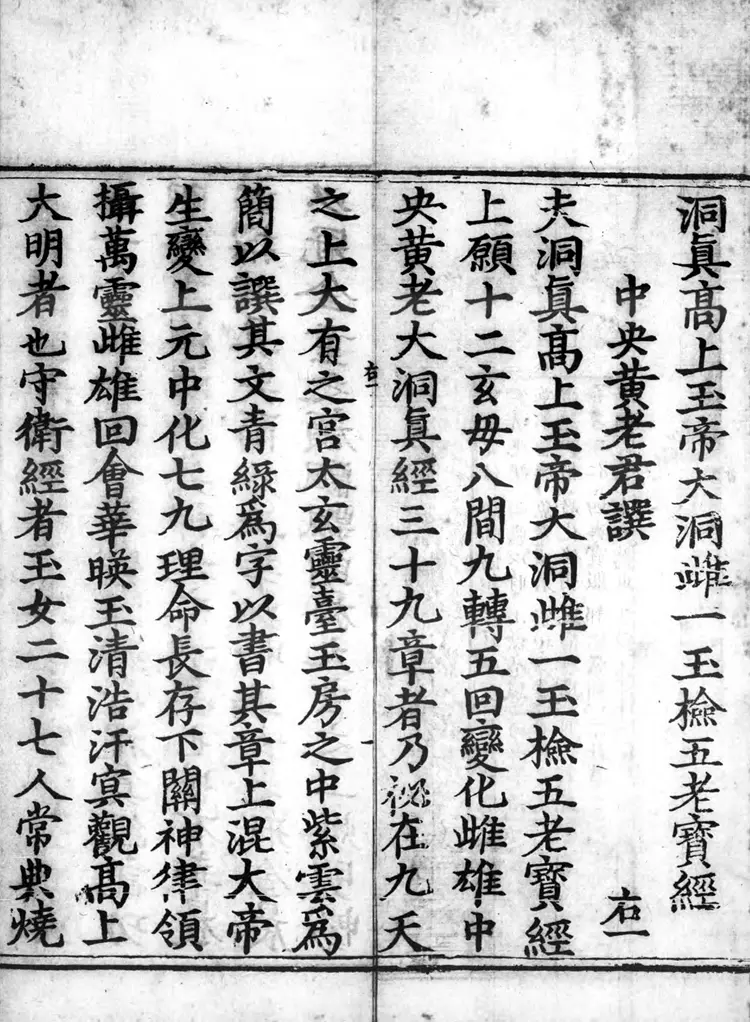 洞眞高上玉帝大洞雌一玉檢五老寶經
中央黄老君譔
右一
夫洞眞高上玉帝大洞雌一玉檢五老寶經
上願十二玄母八間九轉五回變化雌雄中
央黄老大洞眞經三十九章者乃祕在九天
右一
之上大有之宫太玄靈臺玉房之中紫雲爲
簡以譔其文青綠爲字以書其章上混大帝
生變上元中化七九理命長存下關神律領
攝萬靈雌雄回會華暎玉清浩汗㝠觀高上
大明者也守衛經者玉女二十七人常典燒